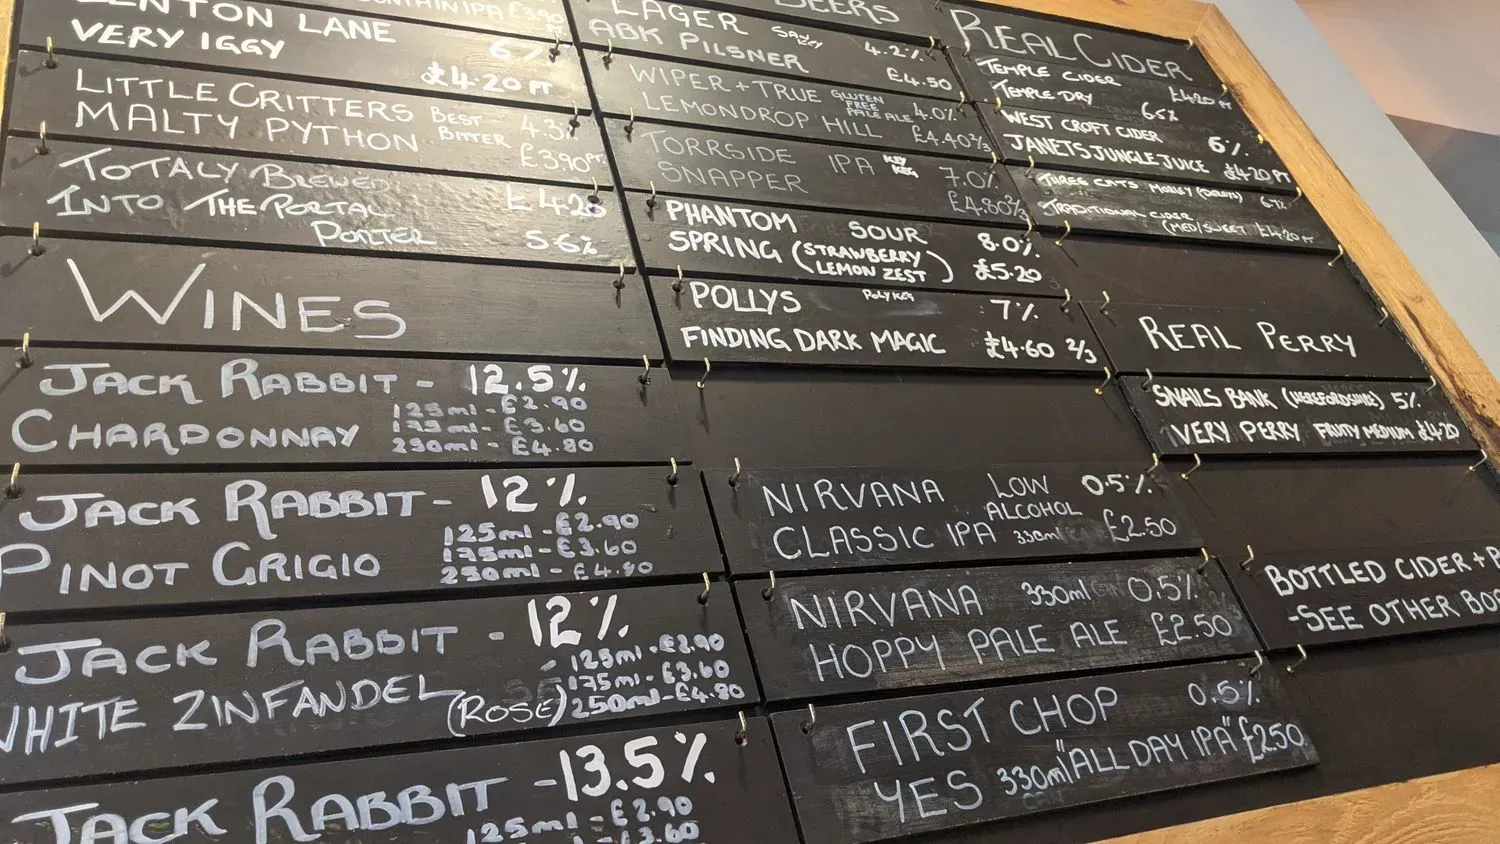 IPA £3.90
LENTON LANE
VERY IGGY 6%
£4.20 PT
LITTLE CRITTERS BEST 4.3%
MALTY PYTHON BITTER £3.90 PT
TOTALY BREWED £4.20
INTO THE PORTAL
PORTER 5.6%
WINES
JACK RABBIT - 12.5%
CHARDONNAY 125ml - £2.90
175ml - £3.60
250ml - £4.80
JACK RABBIT - 12%
PINOT GRIGIO 125ml - £2.90
175ml - £3.60
250ml - £4.80
JACK RABBIT - 12%
WHITE ZINFANDEL (ROSE) 125ml - £2.90
175ml - £3.60
250ml - £4.80
JACK RABBIT - 13.5%
125ml - £2.90
£3.60
BEERS
LAGER 4.2%
ABK PILSNER £4.50
WIPER + TRUE GLUTEN FREE PALE ALE 4.0%
LEMONDROP HILL £4.40 2/3
TORRSIDE IPA KEY KEG 7.0%
SNAPPER £4.80 2/3
PHANTOM SOUR 8.0%
SPRING (STRAWBERRY LEMON ZEST) £5.20
POLLYS POLYKEG 7%
FINDING DARK MAGIC £4.60 2/3
NIRVANA LOW ALCOHOL 0.5%
CLASSIC IPA 330ml £2.50
NIRVANA 330ml 0.5%
HOPPY PALE ALE £2.50
FIRST CHOP 0.5%
YES 330ml "ALL DAY IPA" £2.50
REAL CIDER
TEMPLE CIDER £4.20 PT
TEMPLE DRY 6.5%
WEST CROFT CIDER 6%
JANETS JUNGLE JUICE £4.20 PT
THREE CATS MORLEY (DERBYS) 6%
TRADITIONAL CIDER
(MED/SWEET £4.20 PT
REAL PERRY
SNAILS BANK (HEREFORDSHIRE) 5%
VERY PERRY FRUITY MEDIUM £4.20
BOTTLED CIDER + P
-SEE OTHER BO